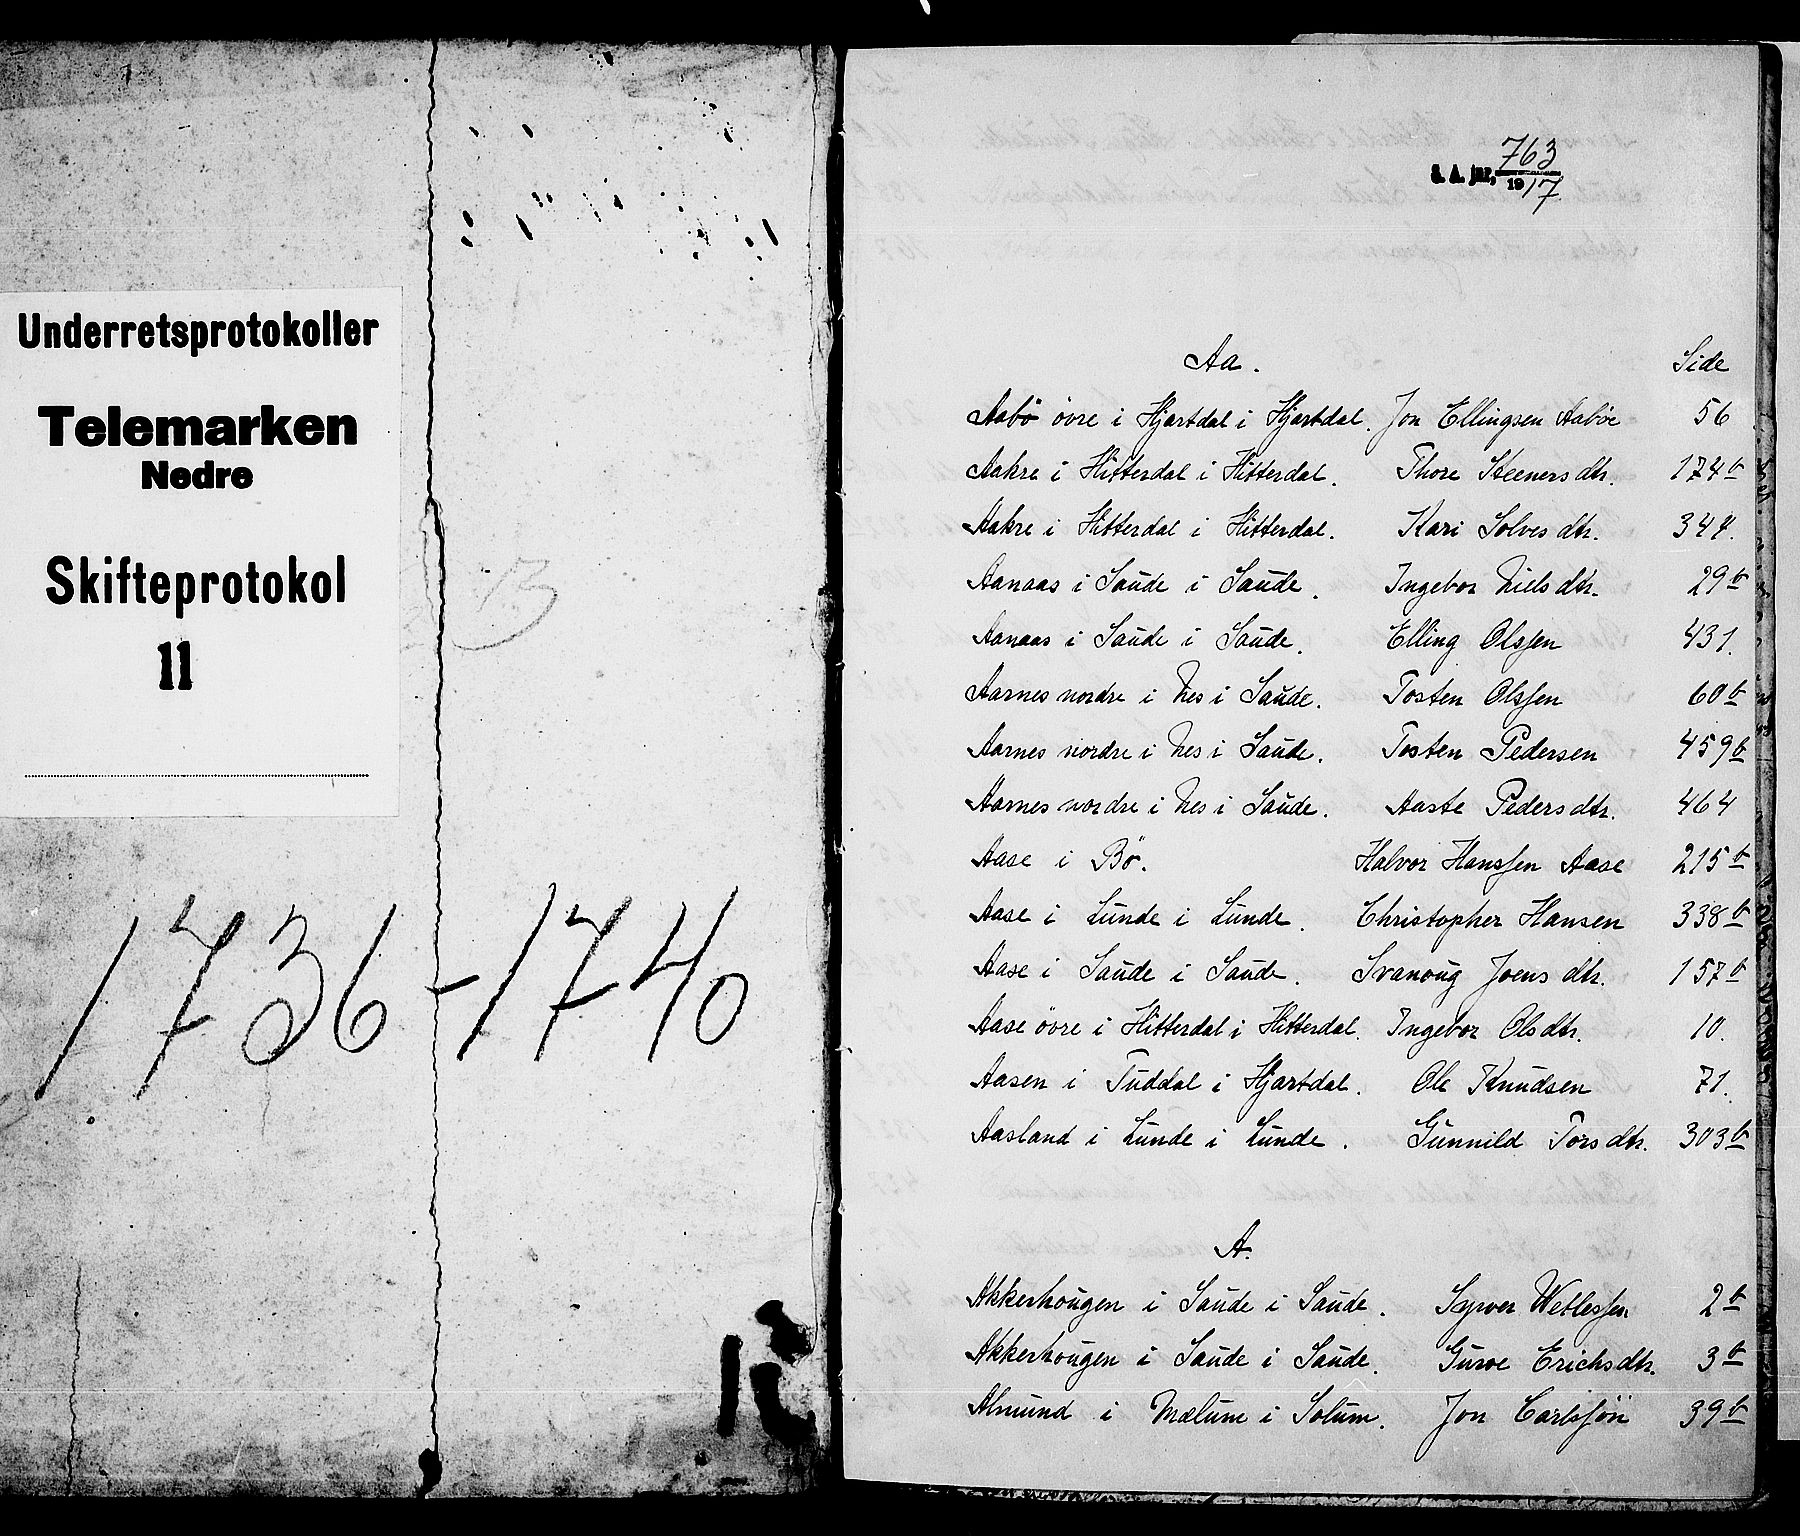 Underretsprotokoller
Telemarken
Nedre
Skifteprotokol
11
1736-1740
S. A. jnr. 763
1917
Aa. Side
Aabö övre i Hjartdal i Hjartdal. Jon Ellingsen Aaböe 56
Aakre i Hitterdal i Hitterdal. Thore Steenersdtr. 174b
Aakre i Hitterdal i Hitterdal. Kari Solvesdtr. 344.
Aanaas i Saude i Saude. Ingebor Nielsdtr. 29b
Aanaas i Saude i Saude. Elling Olssen 431.
Aarnes nordre i Nes i Saude. Tosten Olssen 60b
Aarnes nordre i Nes i Saude. Tosten Pedersen 459b
Aarnes nordre i Nes i Saude. Aaste Pedersdtr. 464
Aase i Bö. Halvor Hanssen Aase 215b
Aase i Lunde i Lunde. Christopher Hansen 338b
Aase i Saude i Saude. Svanoug Joensdtr. 157b
Aase övre i Hitterdal i Hitterdal. Ingebor Olsdtr. 10.
Aasen i Tuddal i Hjartdal. Ole Knudsen 71.
Aasland i Lunde i Lunde. Gunnild Torsdtr. 303b
A.
Akkerhougen i Saude i Saude. Syver Wetlessen 2b
Akkerhougen i Saude i Saude. Guroe Erichsdtr. 3b
Almund i Mælum i Solum. Jon Carlssön 39b